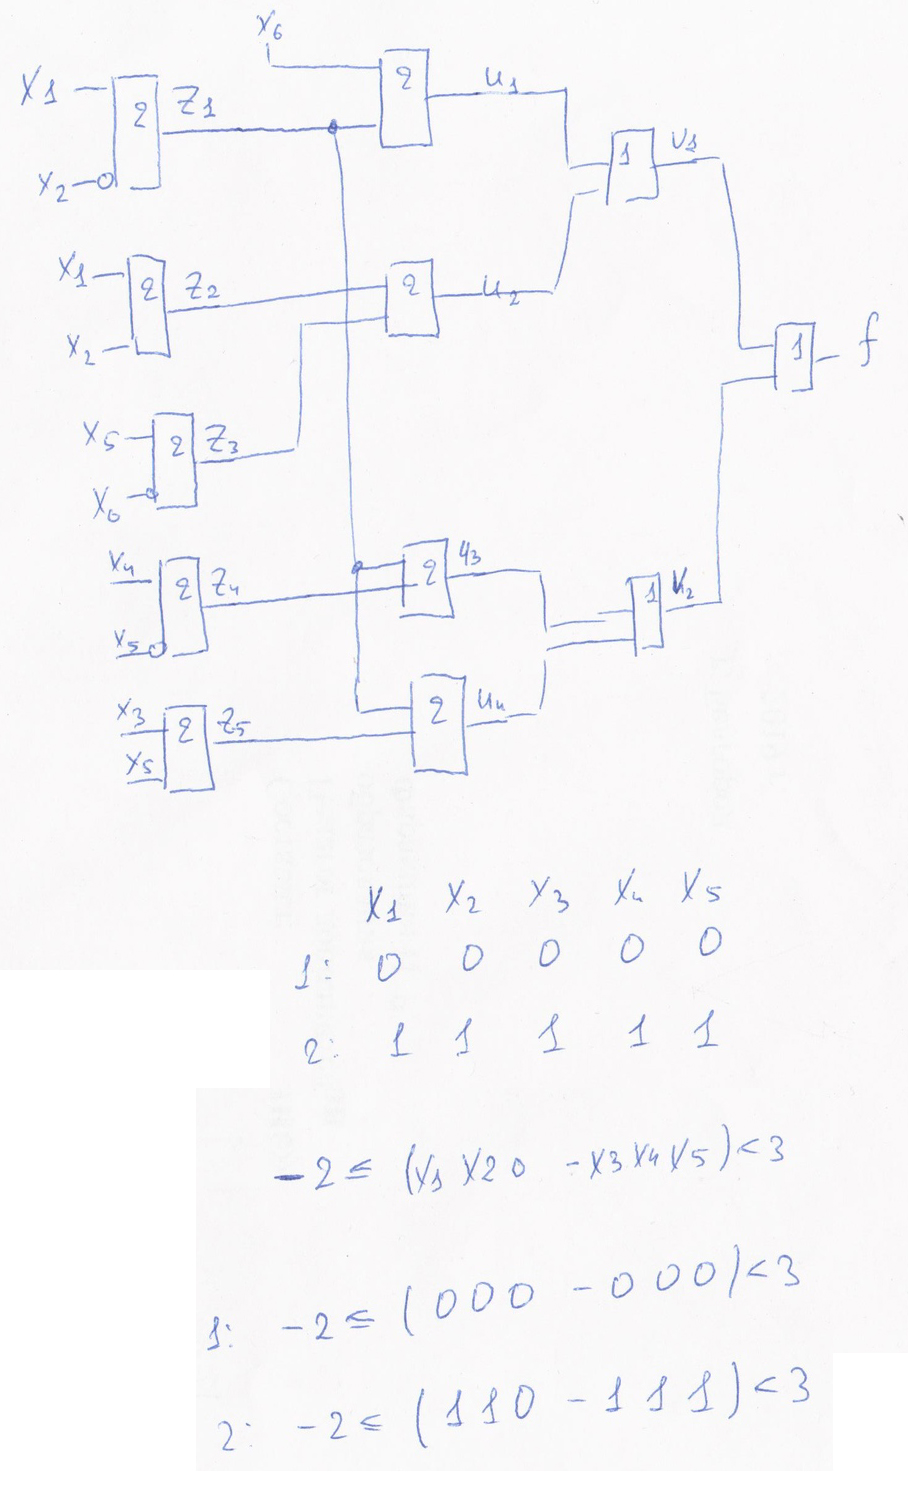 X6
X1 2 Z1 2 u1
X2 1 V1
X1 2 Z2 2 u2
X2 1 f
X5 2 Z3
X6
X4 2 Z4 2 u3
X5 1 V2
X3 2 Z5 2 u4
X5
X1 X2 X3 X4 X5
1: 0 0 0 0 0
2: 1 1 1 1 1
-2 ≤ (X1 X2 0 - X3 X4 X5) < 3
1: -2 ≤ (0 0 0 - 0 0 0) < 3
2: -2 ≤ (1 1 0 - 1 1 1) < 3